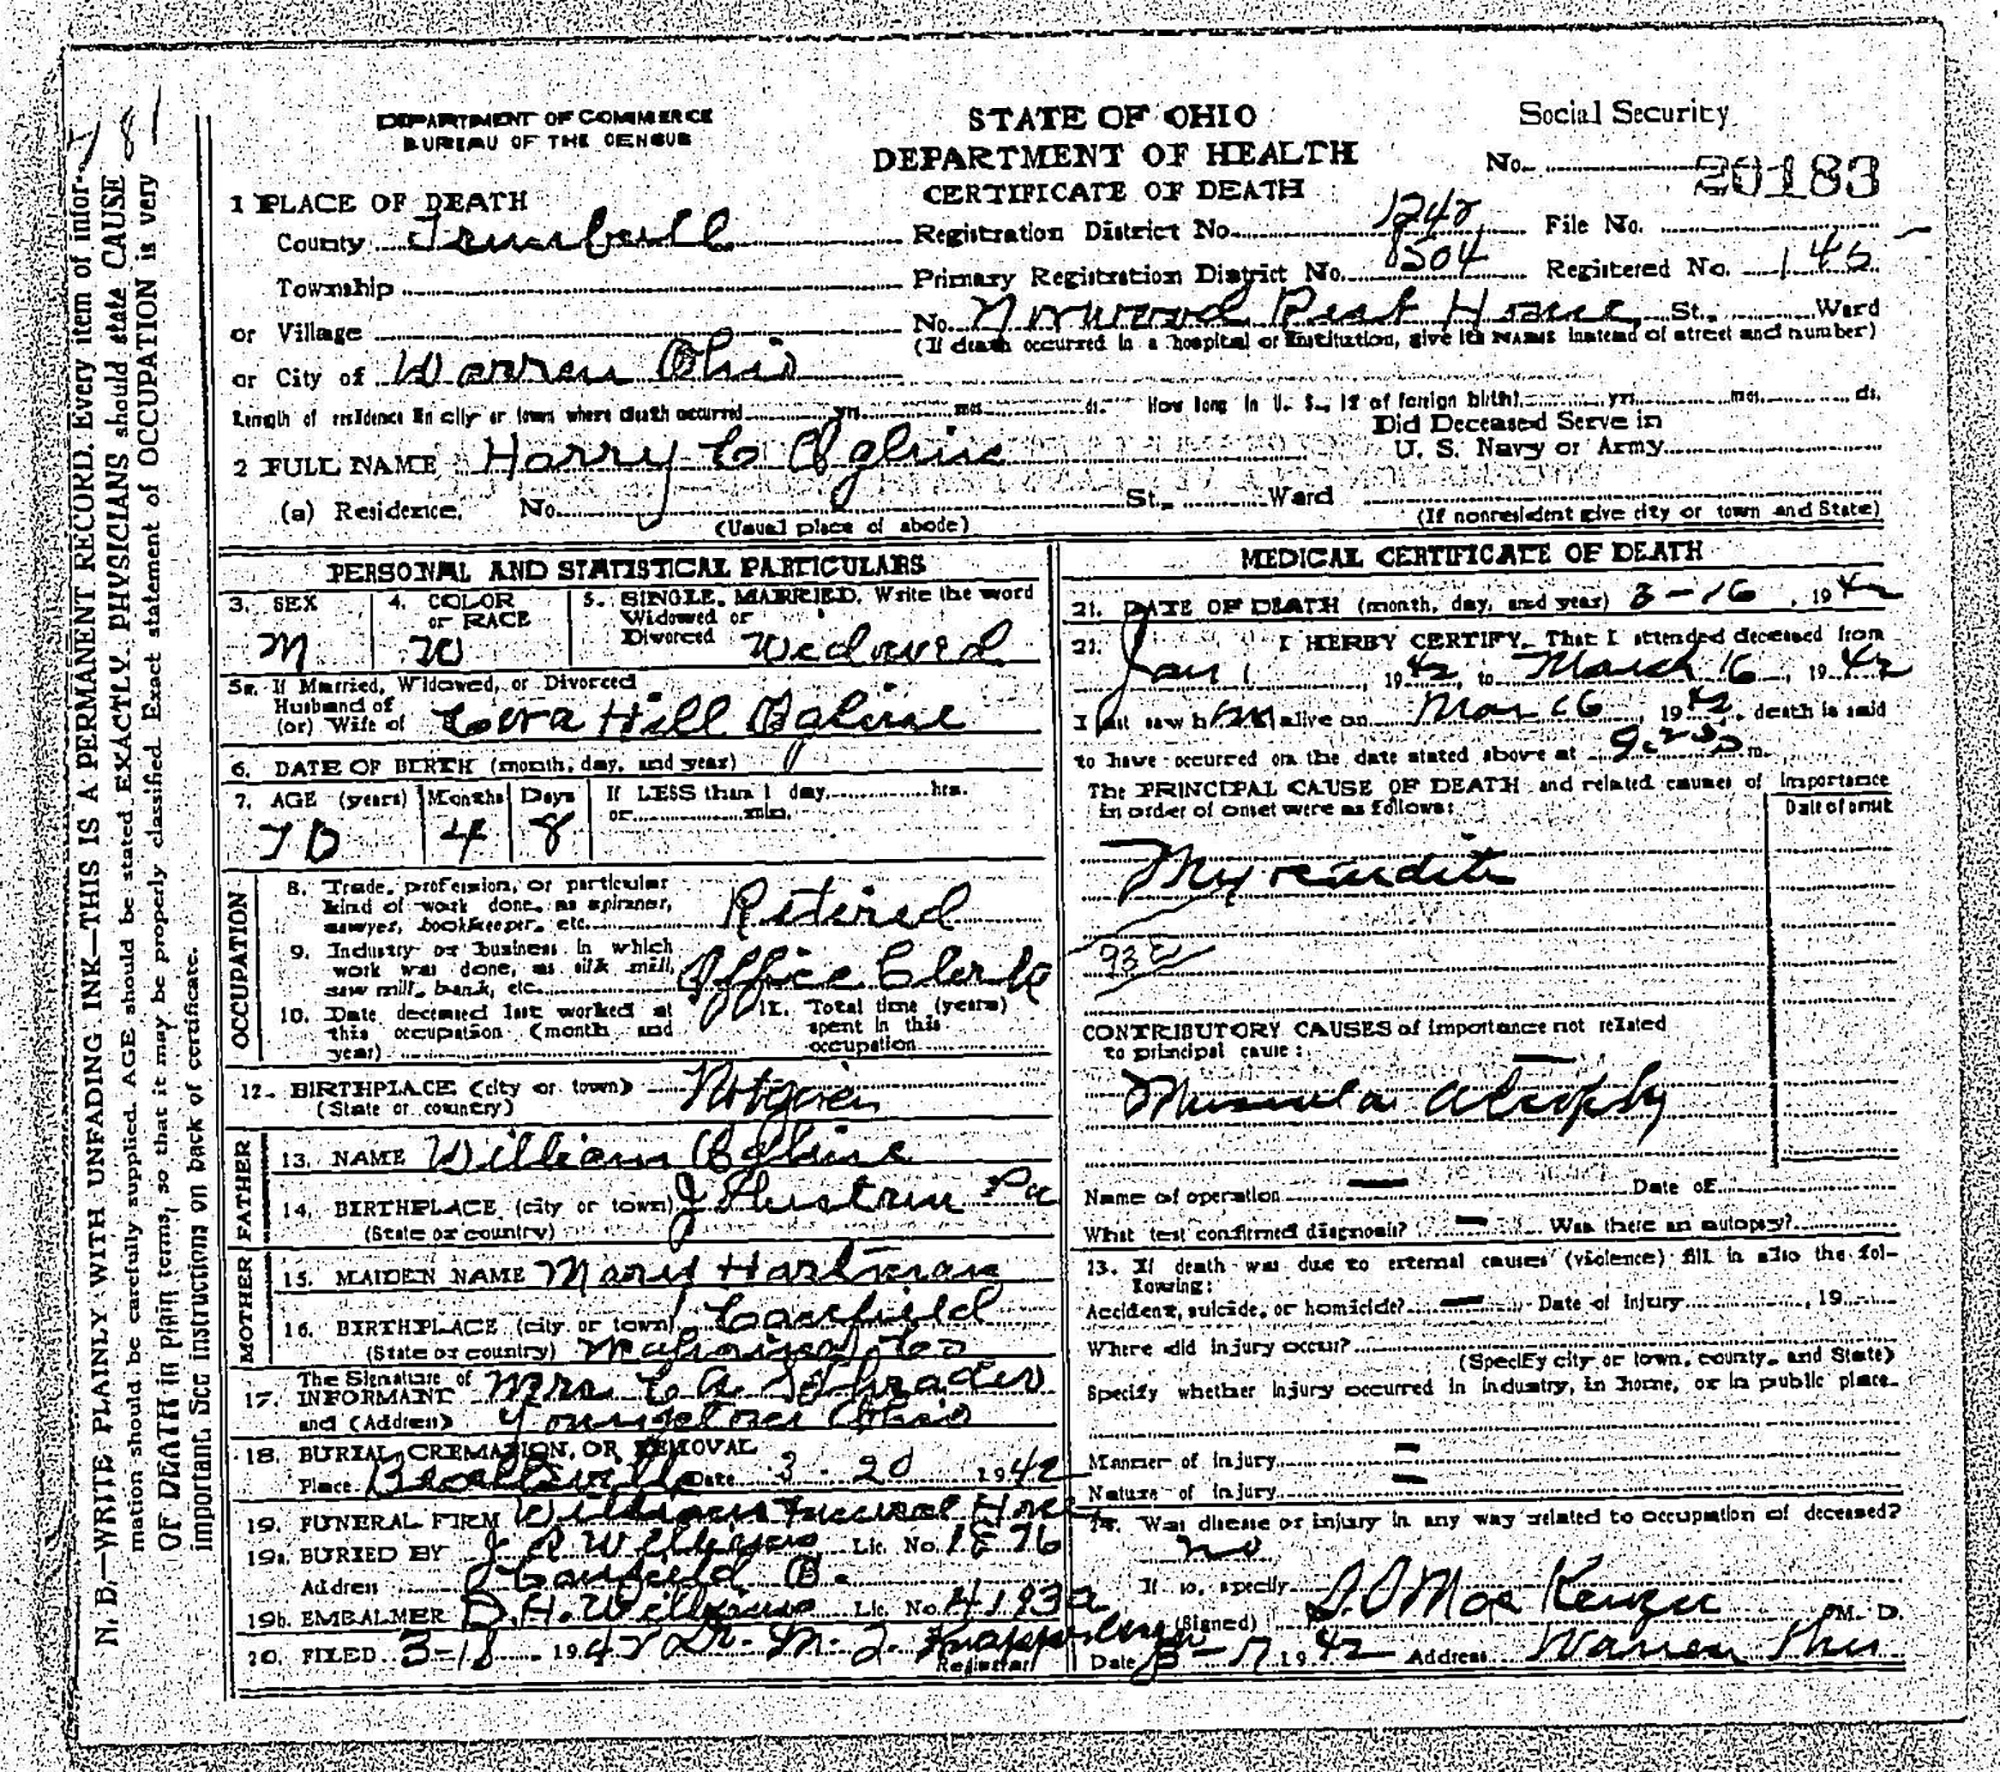 DEPARTMENT OF COMMERCE
BUREAU OF THE CENSUS
STATE OF OHIO
DEPARTMENT OF HEALTH
CERTIFICATE OF DEATH
Social Security
No. 20183
1 PLACE OF DEATH
County Trumbull
Registration District No. 1242 File No.
Township
Primary Registration District No. 8504 Registered No.
or Village
No. Norwood Rest Home St., Ward
(If death occurred in a hospital or institution, give its NAME instead of street and number)
or City of Warren Ohio
Length of residence in city or town where death occurred yrs. mos. ds. How long in U. S., if of foreign birth? yrs. mos. ds.
Did Deceased Serve in
U. S. Navy or Army
2 FULL NAME Harry C Ogline
(a) Residence. No. St., Ward
(Usual place of abode)
(If nonresident give city or town and State)
PERSONAL AND STATISTICAL PARTICULARS
3. SEX
M
4. COLOR
or RACE
W
5. SINGLE, MARRIED, Write the word
Widowed or
Divorced Widowed
5a. If Married, Widowed, or Divorced
Husband of
(or) Wife of Cora Hill Ogline
6. DATE OF BIRTH (month, day, and year)
7. AGE (years) Months Days If LESS than 1 day, hrs.
or min.
70 4 8
OCCUPATION
8. Trade, profession, or particular
kind of work done, as spinner,
sawyer, bookkeeper, etc. Retired
9. Industry or business in which
work was done, as silk mill,
saw mill, bank, etc. Office Clerk
10. Date deceased last worked at
this occupation (month and
year)
11. Total time (years)
spent in this
occupation
12. BIRTHPLACE (city or town)
(State or country)
FATHER
13. NAME William Ogline
14. BIRTHPLACE (city or town) Pa
(State or country)
MOTHER
15. MAIDEN NAME Mary Hartman
16. BIRTHPLACE (city or town) Canfield
(State or country) Mahoning Co
17. The Signature of
INFORMANT Mrs C A Schrader
and (Address) Youngstown Ohio
18. BURIAL, CREMATION, OR REMOVAL
Place Date 3-20 1942
19. FUNERAL FIRM Williams Funeral Home
19a. BURIED BY J R Williams Lic. No.
Address Canfield O.
19b. EMBALMER D.H. Williams Lic. No.
20. FILED 3-18, 1942 Dr. M. J. Knapp
Registrar
MEDICAL CERTIFICATE OF DEATH
21. DATE OF DEATH (month, day, and year) 3-16, 1942
21. I HERBY CERTIFY, That I attended deceased from
Jan 1, 1942, to March 16, 1942
I last saw him alive on Mar 16, 1942, death is said
to have occurred on the date stated above at m.
The PRINCIPAL CAUSE OF DEATH and related causes of Importance
in order of onset were as follows:
Date of onset
CONTRIBUTORY CAUSES of importance not related
to principal cause:
atrophy
Name of operation — Date of
What test confirmed diagnosis? — Was there an autopsy?
23. If death was due to external causes (violence) fill in also the fol-
lowing:
Accident, suicide, or homicide? — Date of Injury, 19
Where did injury occur?
(Specify city or town, county, and State)
Specify whether injury occurred in industry, in home, or in public place.
Manner of injury —
Nature of injury —
24. Was disease or injury in any way related to occupation of deceased?
no
If so, specify
(Signed) MacKenzie M. D.
Date 3-17 1942 Address Warren Ohio
N. B.—WRITE PLAINLY WITH UNFADING INK—THIS IS A PERMANENT RECORD. Every item of infor-
mation should be carefully supplied. AGE should be stated EXACTLY. PHYSICIANS should state CAUSE
OF DEATH in plain terms, so that it may be properly classified. Exact statement of OCCUPATION is very
important. See instructions on back of certificate.